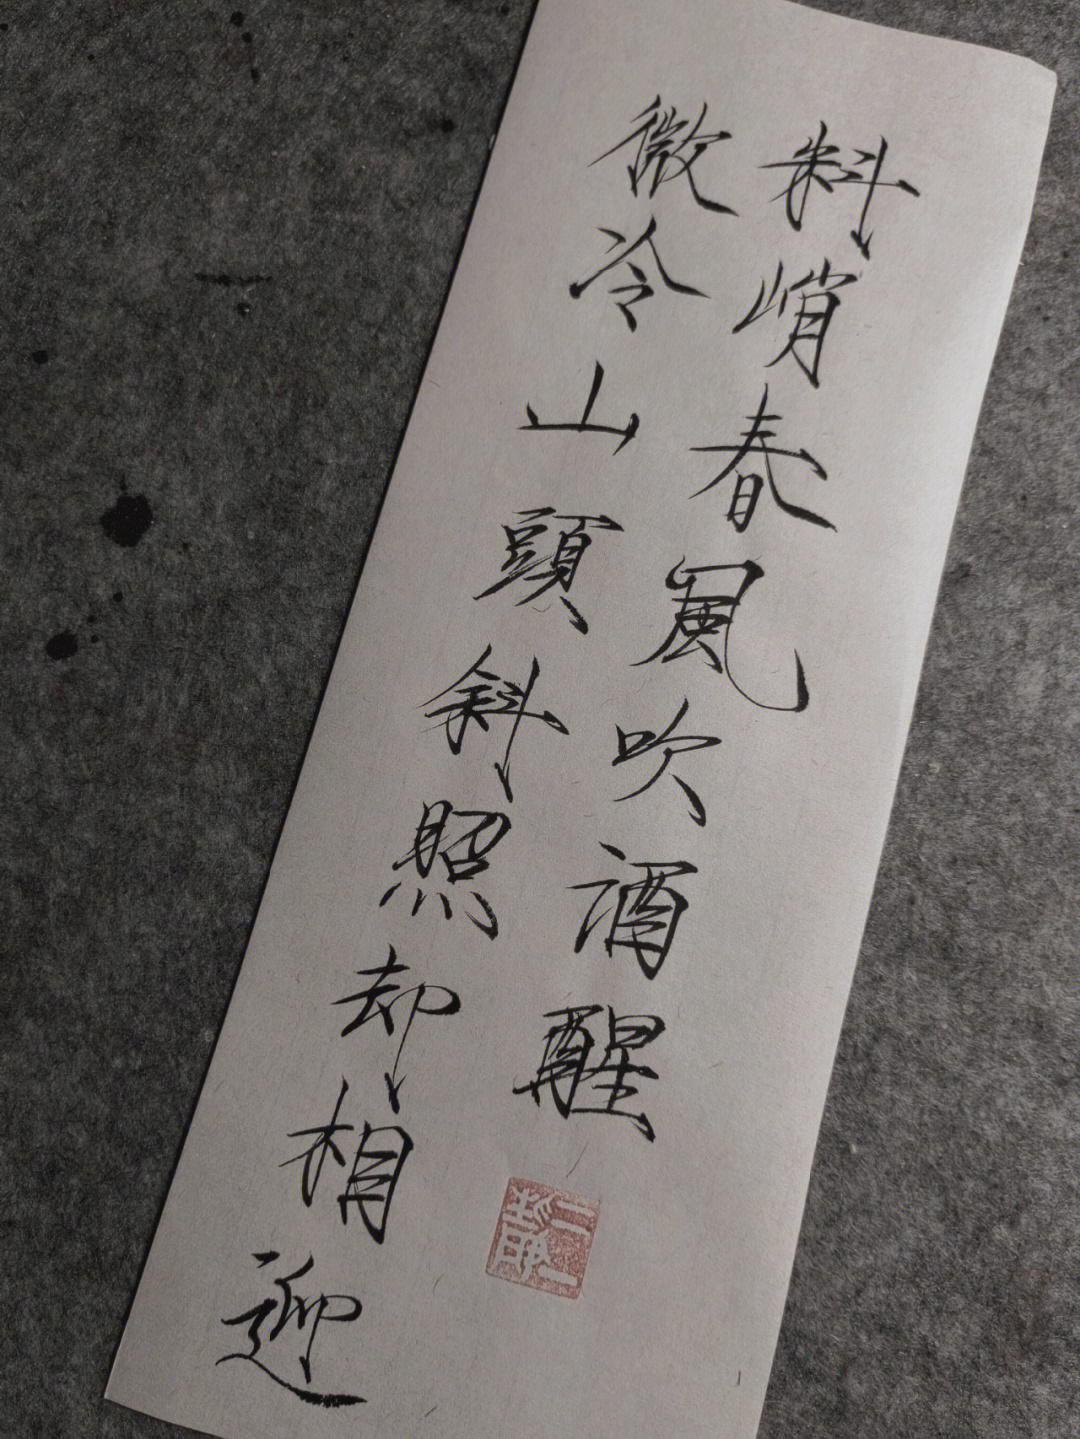 料峭春風吹酒醒
微冷山頭斜照却相迎